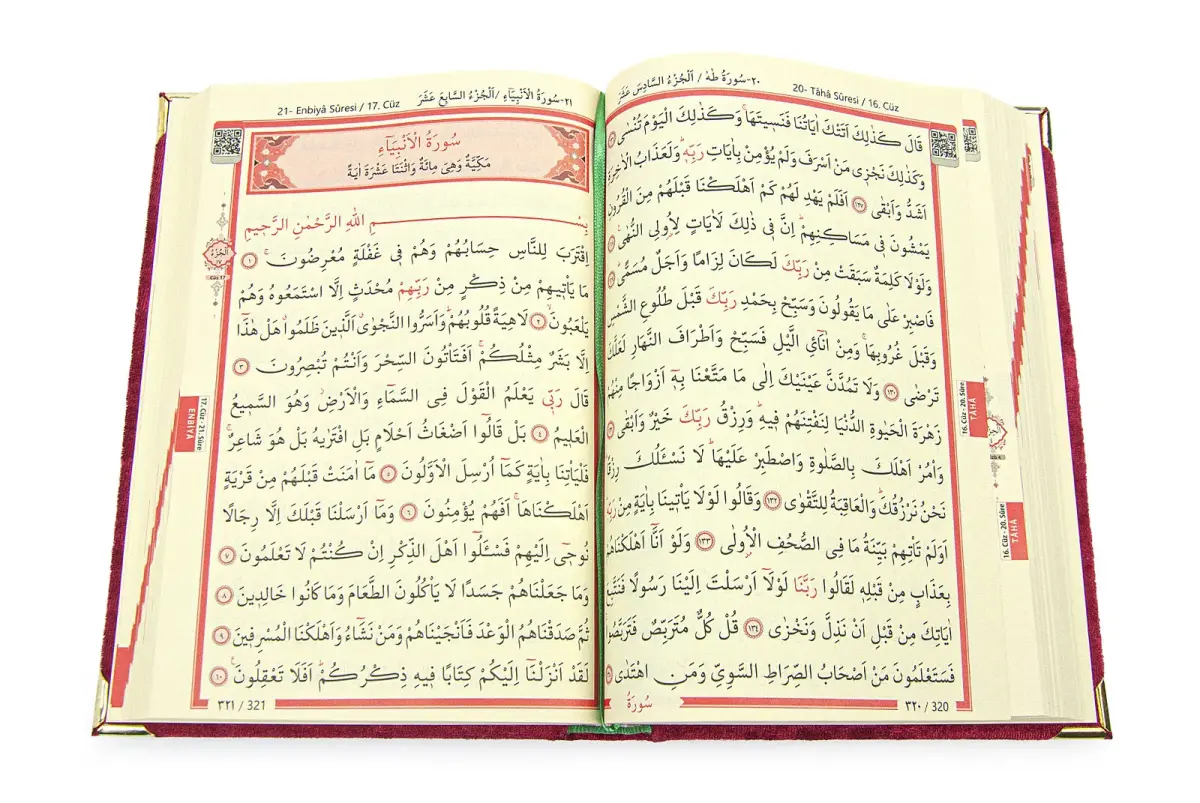 ٢٠-سُورَةُ طٰهٰ / اَلْجُزْءُ السَّادِسَ عَشَرَ
20- Tâhâ Sûresi / 16. Cüz
قَالَ كَذٰلِكَ اَتَتْكَ اٰيَاتُنَا فَنَسِيتَهَاۚ وَكَذٰلِكَ الْيَوْمَ تُنْسٰى
وَكَذٰلِكَ نَجْزٖى مَنْ اَسْرَفَ وَلَمْ يُؤْمِنْ بِاٰيَاتِ رَبِّهٖؕ وَلَعَذَابُ الْاٰخِرَةِ
اَشَدُّ وَاَبْقٰى ﴿١٢٧﴾ اَفَلَمْ يَهْدِ لَهُمْ كَمْ اَهْلَكْنَا قَبْلَهُمْ مِنَ الْقُرُونِ
يَمْشُونَ فٖى مَسَاكِنِهِمْؕ اِنَّ فٖى ذٰلِكَ لَاٰيَاتٍ لِاُولِى النُّهٰى
وَلَوْلَا كَلِمَةٌ سَبَقَتْ مِنْ رَبِّكَ لَكَانَ لِزَامًا وَاَجَلٌ مُسَمًّى
فَاصْبِرْ عَلٰى مَا يَقُولُونَ وَسَبِّحْ بِحَمْدِ رَبِّكَ قَبْلَ طُلُوعِ الشَّمْسِ
وَقَبْلَ غُرُوبِهَاۚ وَمِنْ اٰنَٓائِ الَّيْلِ فَسَبِّحْ وَاَطْرَافَ النَّهَارِ لَعَلَّكَ
تَرْضٰى ﴿١٣٠﴾ وَلَا تَمُدَّنَّ عَيْنَيْكَ اِلٰى مَا مَتَّعْنَا بِهٖٓ اَزْوَاجًا مِنْهُمْ
زَهْرَةَ الْحَيٰوةِ الدُّنْيَا لِنَفْتِنَهُمْ فٖيهِؕ وَرِزْقُ رَبِّكَ خَيْرٌ وَاَبْقٰى
وَاْمُرْ اَهْلَكَ بِالصَّلٰوةِ وَاصْطَبِرْ عَلَيْهَاؕ لَا نَسْـَٔلُكَ رِزْقًاؕ
نَحْنُ نَرْزُقُكَؕ وَالْعَاقِبَةُ لِلتَّقْوٰى ﴿١٣٢﴾ وَقَالُوا لَوْلَا يَاْتٖينَا بِاٰيَةٍ مِنْ رَبِّهٖؕ
اَوَلَمْ تَاْتِهِمْ بَيِّنَةُ مَا فِى الصُّحُفِ الْاُولٰى ﴿١٣٣﴾ وَلَوْ اَنَّٓا اَهْلَكْنَاهُمْ
بِعَذَابٍ مِنْ قَبْلِهٖ لَقَالُوا رَبَّنَا لَوْلَٓا اَرْسَلْتَ اِلَيْنَا رَسُولًا فَنَتَّبِعَ
اٰيَاتِكَ مِنْ قَبْلِ اَنْ نَذِلَّ وَنَخْزٰى ﴿١٣٤﴾ قُلْ كُلٌّ مُتَرَبِّصٌ فَتَرَبَّصُواۚ
فَسَتَعْلَمُونَ مَنْ اَصْحَابُ الصِّرَاطِ السَّوِىِّ وَمَنِ اهْتَدٰى
سُورَةُ
٣٢٠ / 320
16. Cüz - 20. Sûre
TÂHÂ
16. Cüz - 20. Sûre
TÂHÂ
٢١-سُورَةُ الْاَنْبِيَٓاءِ / اَلْجُزْءُ السَّابِعَ عَشَرَ
21- Enbiyâ Sûresi / 17. Cüz
سُورَةُ الْاَنْبِيَٓاءِ
مَكِّيَّةٌ وَهِىَ مِائَةٌ وَاثْنَتَا عَشْرَةَ اٰيَةً
بِسْمِ اللّٰهِ الرَّحْمٰنِ الرَّحٖيمِ
اِقْتَرَبَ لِلنَّاسِ حِسَابُهُمْ وَهُمْ فٖى غَفْلَةٍ مُعْرِضُونَۚ ﴿١﴾
مَا يَاْتٖيهِمْ مِنْ ذِكْرٍ مِنْ رَبِّهِمْ مُحْدَثٍ اِلَّا اسْتَمَعُوهُ وَهُمْ
يَلْعَبُونَۙ ﴿٢﴾ لَاهِيَةً قُلُوبُهُمْؕ وَاَسَرُّوا النَّجْوٰىۗ اَلَّذٖينَ ظَلَمُواۗ هَلْ هٰذَٓا
اِلَّا بَشَرٌ مِثْلُكُمْۚ اَفَتَاْتُونَ السِّحْرَ وَاَنْتُمْ تُبْصِرُونَ ﴿٣﴾
قَالَ رَبّٖى يَعْلَمُ الْقَوْلَ فِى السَّمَٓاءِ وَالْاَرْضِؗ وَهُوَ السَّمٖيعُ
الْعَلٖيمُ ﴿٤﴾ بَلْ قَالُٓوا اَضْغَاثُ اَحْلَامٍ بَلِ افْتَرٰيهُ بَلْ هُوَ شَاعِرٌۚ
فَلْيَاْتِنَا بِاٰيَةٍ كَمَٓا اُرْسِلَ الْاَوَّلُونَ ﴿٥﴾ مَٓا اٰمَنَتْ قَبْلَهُمْ مِنْ قَرْيَةٍ
اَهْلَكْنَاهَاۚ اَفَهُمْ يُؤْمِنُونَ ﴿٦﴾ وَمَٓا اَرْسَلْنَا قَبْلَكَ اِلَّا رِجَالًا
نُوحٖٓى اِلَيْهِمْ فَسْـَٔلُٓوا اَهْلَ الذِّكْرِ اِنْ كُنْتُمْ لَا تَعْلَمُونَ ﴿٧﴾
وَمَا جَعَلْنَاهُمْ جَسَدًا لَا يَاْكُلُونَ الطَّعَامَ وَمَا كَانُوا خَالِدٖينَ ﴿٨﴾
ثُمَّ صَدَقْنَاهُمُ الْوَعْدَ فَاَنْجَيْنَاهُمْ وَمَنْ نَشَٓاءُ وَاَهْلَكْنَا الْمُسْرِفٖينَ ﴿٩﴾
لَقَدْ اَنْزَلْنَٓا اِلَيْكُمْ كِتَابًا فٖيهِ ذِكْرُكُمْؕ اَفَلَا تَعْقِلُونَۚ ﴿١٠﴾
٣٢١ / 321
اَلْجُزْءُ
Cüz 17
17. Cüz - 21. Sûre
ENBİYÂ